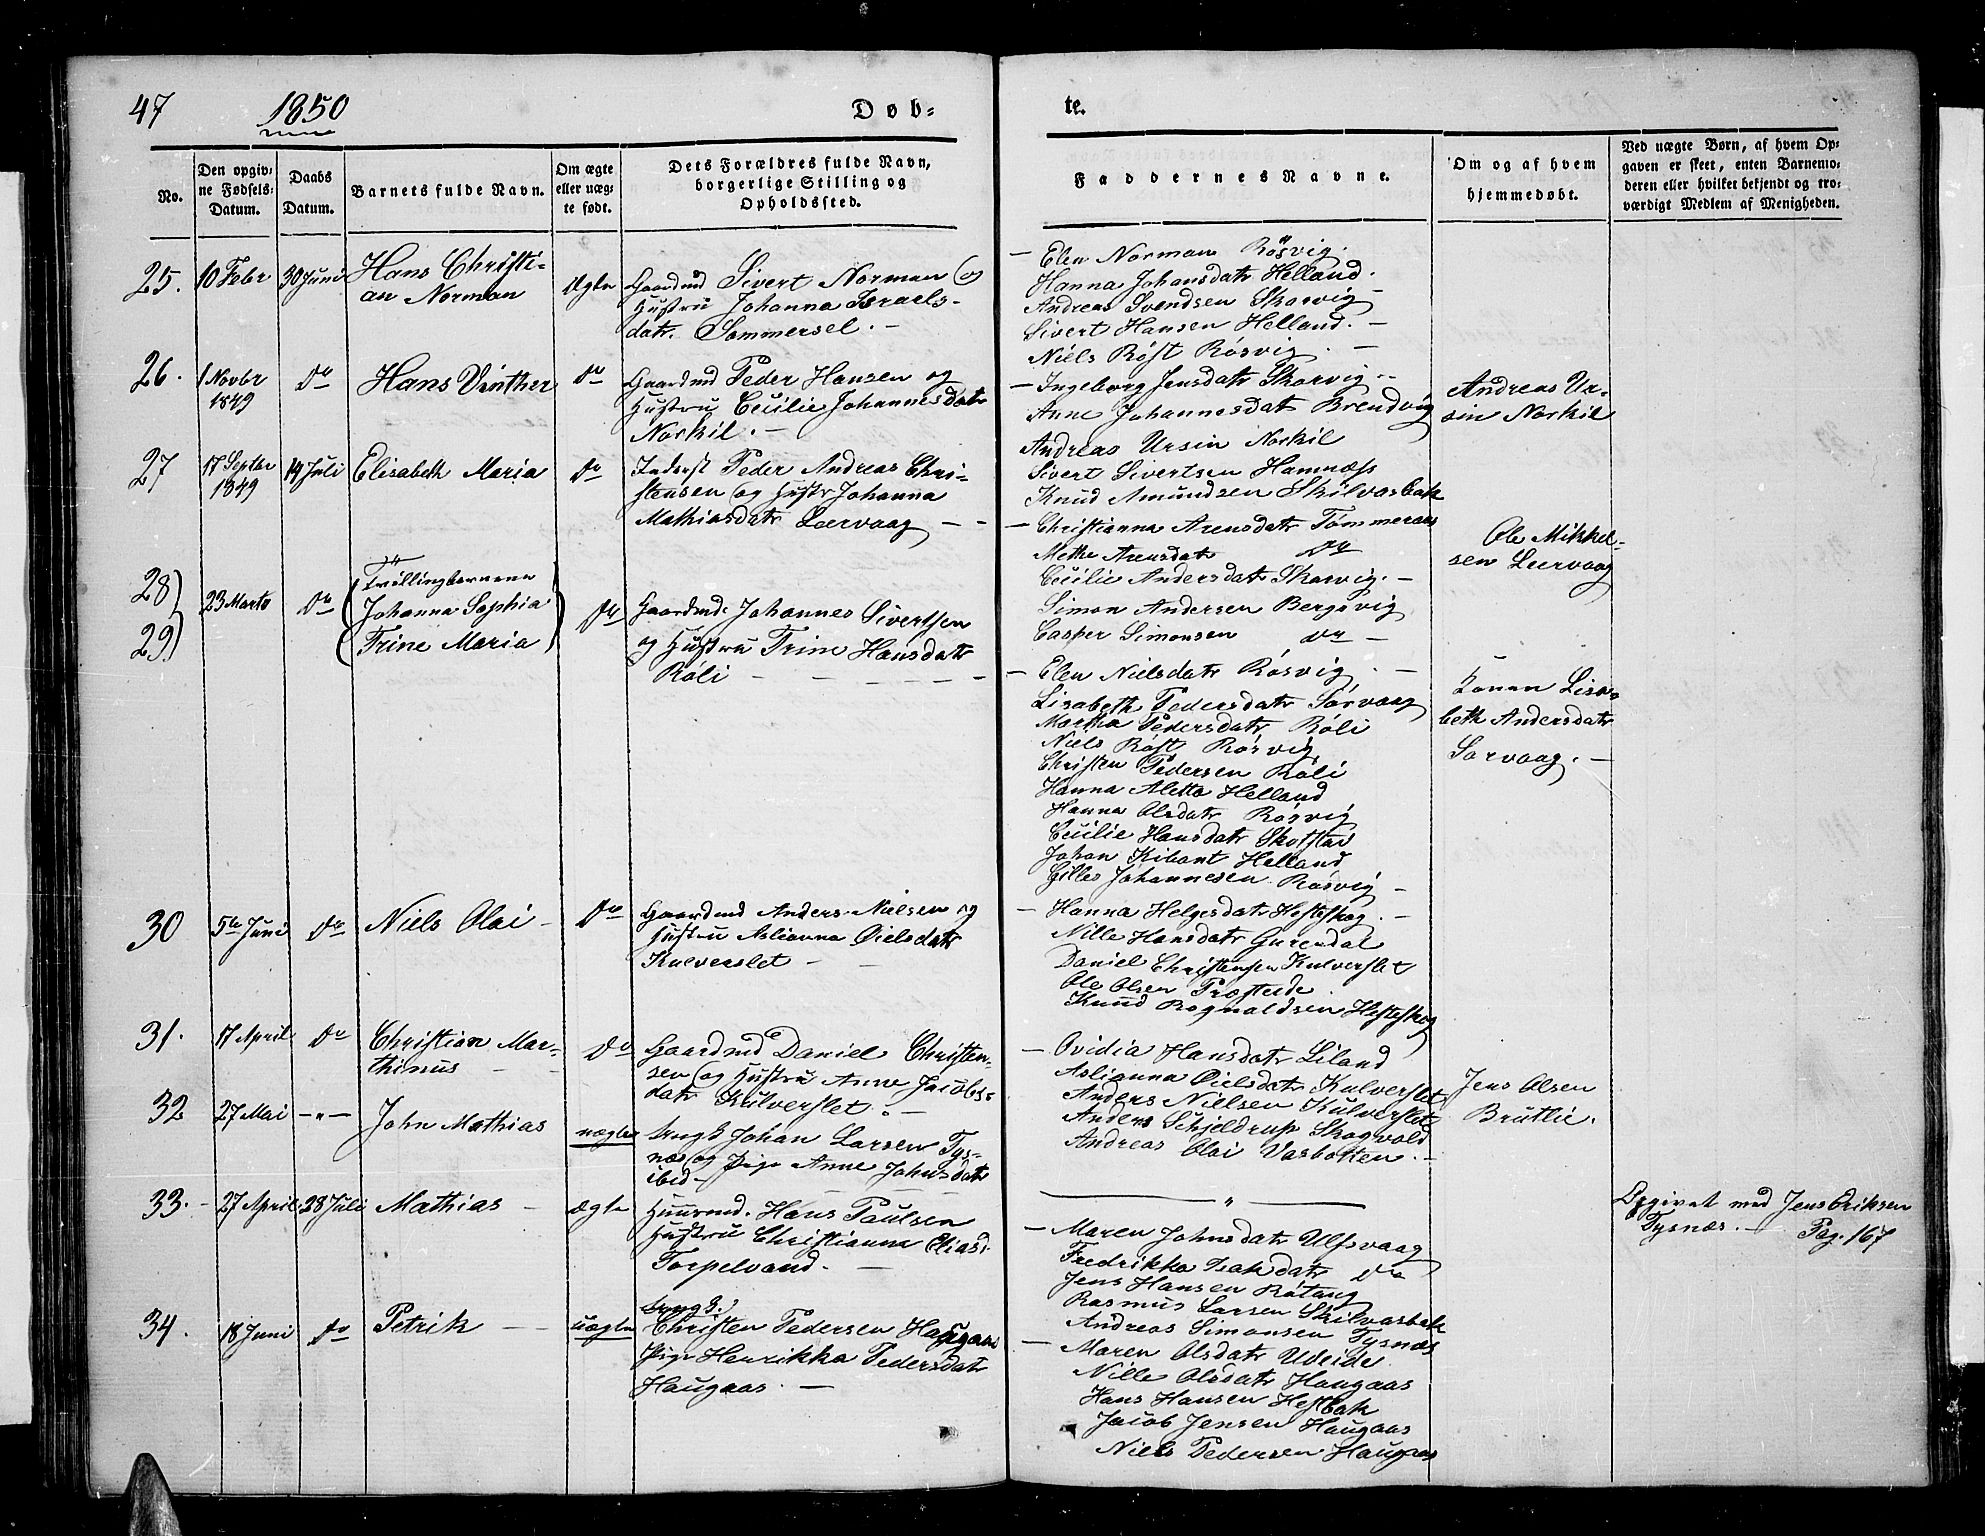 47 1850 Døb=
te.
No.
Den opgiv-
ne Fødsels-
Datum.
Daabs
Datum.
Barnets fulde Navn.
Om ægte
eller uæg-
te født.
Dets Forældres fulde Navn,
borgerlige Stilling og
Opholdssted.
Faddernes Navne.
Om og af hvem
hjemmedøbt.
Ved uægte Børn, af hvem Op-
gaven er skeet, enten Barnemo-
deren eller hvilket bekjendt og tro-
værdigt Medlem af Menigheden.
25. 10 Febr 30 Juni Hans Christi-
an Norman
Ægte
Gaardmd Sivert Norman og
Hustru Johanna Israels-
datr. Sommersel. -
- Elen Norman Røsvig.
Hanna Johansdatr Helland.
Andreas Svendsen Skarvig -
Sivert Hansen Helland. -
Niels Røst Røsvig. -
26. 1 Novbr
1849
do Hans Vinther do
Gaardmd Peder Hansen og
Hustru Cecilie Johannesdatr
Norkil. -
- Ingeborg Jensdatr Skarvig -
Anne Johannesdatr Brendvig
Andreas Ursin Norkil
Sivert Sivertsen Hamnæss
Knud Amundsen Skilvasbak
Andreas Ur-
sin Norkil
27 17 Septbr
1849
14 Juli Elisabeth Maria do
Inderst Peder Andreas Chri-
stensen og Hustr Johanna
Mathiasdatr Leervaag - -
- Christianna Arensdatr Tømmeraas
Methe Arensdatr do
Cecilie Andersdatr Skarvig. -
Simon Andersen Bergsvig
Casper Simonsen do -
Ole Mikkel-
sen Leervaag
28)
29)
23 Marts do
Tvillingbørnene
Johanna Sophia
Trine Maria
do
Gaardmd: Johannes Sivertsen
og Hustru Trine Hansdatr
Røli - - - - - -
- Elen Nielsdatr Røsvig. -
Lisabeth Pedersdatr Sørvaag
Martha Pedersdatr Røli
Niels Røst Røsvig
Christen Pedersen Røli
Hanna Aletta Helland
Hanna Olsdatr Røsvig
Cecilie Hansdatr Skotstøi
Johan Kibant Helland
Gilles Johannesen Røsvig -
Konen Lisa-
beth Andersdatr
Sørvaag. -
30 5te Juni do Niels Olai - do
Gaardmd Anders Nielsen og
Hustru Aslianna Øielsdatr
Kulverslet - -
- Hanna Helgesdatr Hesteskog. -
Nille Hansdatr Gurendal
Daniel Christensen Kulverslet
Ole Olsen Præsteide
Knud Rognaldsen Hesteskog
31. 17 April do Christian Mar-
thinus - -
do
Gaardmd Daniel Christen-
sen og Hustru Anne Jacobs-
datr Kulverslet. -
- Ovidia Hansdatr Liland
Aslianna Øielsdatr Kulverslet
Anders Nielsen Kulverslet
Anders Schjeldrup Skogvold
Andreas Olai Vasbotten. -
Jens Olsen
Brutlie.
32 27 Mai -"- John Mathias uægte
Ungk Johan Larsen Tys-
næs og Pige Anne Johnsdatr
ibid -
"
Opgivet med Jens Eriksen
Tysnæs. - Pag. 167
33. - 27 April 28 Juli Mathias - ægte
Huusmd. Hans Paulsen
Hustru Christianna Eliasd.
Torpelvand. -
- Maren Johnsdatr Ulfsvaag
Fredrikka Isaksdatr do
Jens Hansen Røtang
Rasmus Larsen Skilvasbak
Andreas Simonsen Tysnæs
34. 18 Juni do Petrik - uægte
Ungk.
Christen Pedersen Haugaas
Pige Henrikka Pedersdatr
Haugaas. -
- Maren Olsdatr Udeide
Nille Olsdatr Haugaas
Hans Hansen Hestbak
Jacob Jensen Haugaas
Niels Pedersen Haugaas